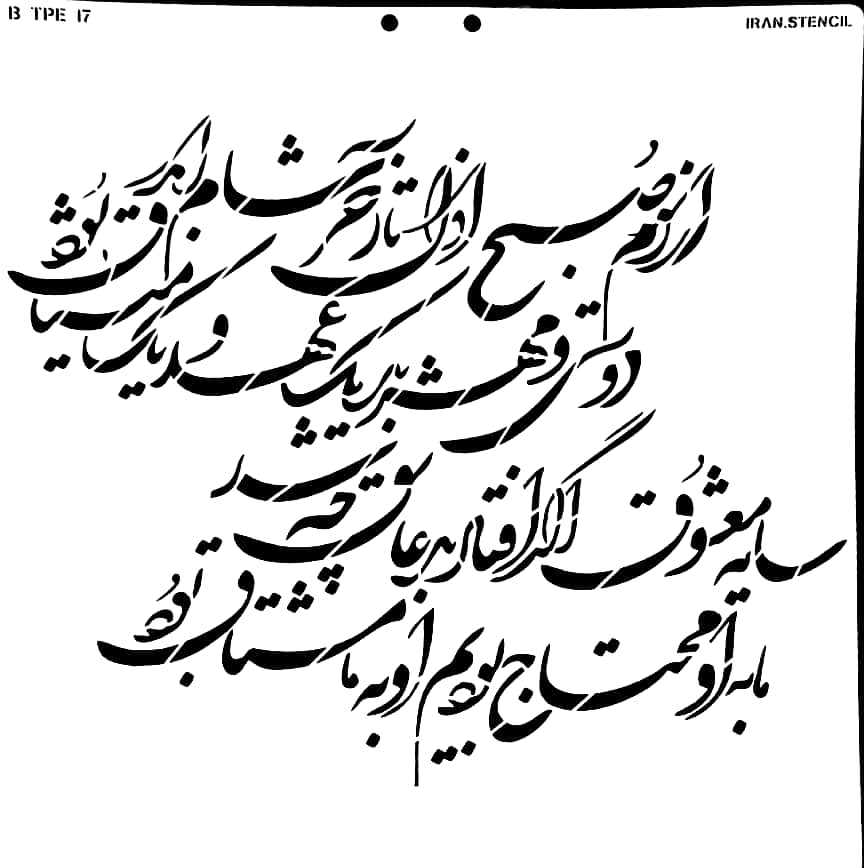 B TPE 17
IRAN.STENCIL
از دم صبح ازل تا آخر شام ابد
دوستی و مهر بر یک عهد و یک میثاق بود
سایه معشوق اگر افتاد بر عاشق چه شد
ما به او محتاج بودیم او به ما مشتاق بود